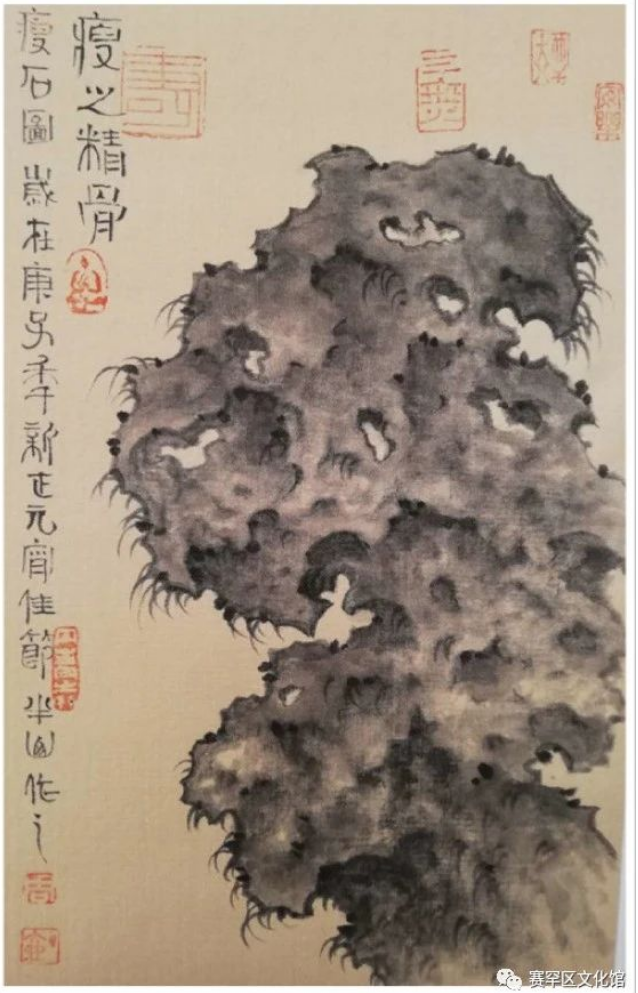 瘦之精骨
瘦石圖 歲在庚子年新正元宵佳節 半山作之
赛罕区文化馆